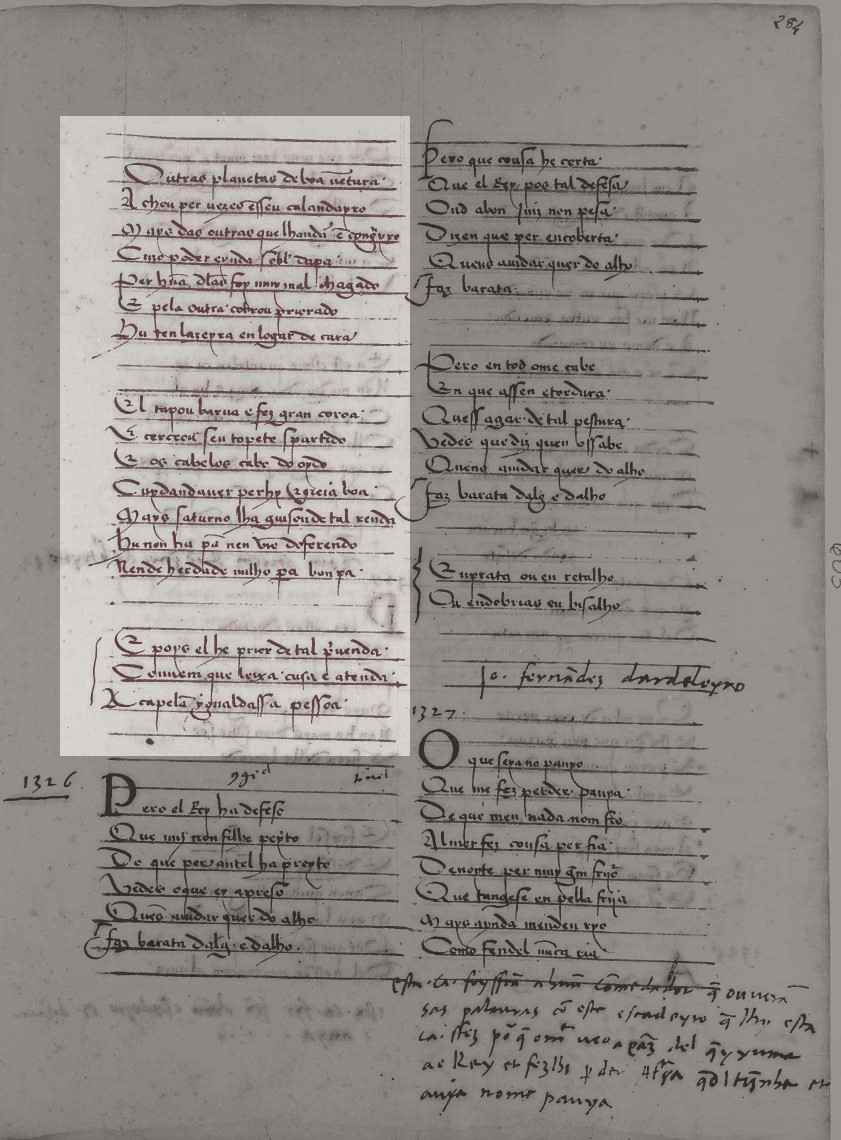 284
Outras planetas de boa uẽtura
Achou per uezes esseu calandayro
Mays das outras que lhandã e cõtrayro
Cuio poder aynda sobl
Per hũa dlas foy muy mal chagado
E pela outra cobrou priorado
Hu ten lazeyra en logar de cara
El rapou barua e fez gran coroa
E cerceou seu topete spartido
E os cabelos cabo do oydo
Cuydandauer per hy
Mays saturno lha guisou de tal renda
Hu non ha pã nen uĩo deferendo
Nen de herdade milho pa bon
E poys el he prior de tal puenda
Conuem que leixa cura e atenda
A capelã ygualdassa pessoa
1326
Pero el Rey ha defeso
Que iuyz non filhe peyto
Do que per antel ha preyto
Vedes o que ey apreso
Quẽs aiudar quer do alho
faz barata dalg e dalho
Pero que cousa he certa
Que el Rey pos tal defesa
Ond a bon iuiz non pesa
Dizen que per encoberta
Quens aiudar quer do alho
faz barata
Pero en tod ome cabe
En que assen e cordura
Quess agar de tal pestura
Vedes que diz quen o ssabe
Quens aiudar quer do alho
faz barata dalg e dalho
Eu prata ou en retalho
Ou en dobras en bisalho
Jo. fernãdez dardeleyro
1327
O que seia no pauyo
Que me fez perder pauya
De que meu nada nom fio
Al me fez cousa per fia
De noite per muy grã frio
Que tangese en pella fria
Mays aynda mende ryo
Como fendel nũca ria
Esta ca foy ffeita a hum comẽdador q̃ ouuera
sas palauras cõ este escudeyro q̃ lhi esta
ca
ao Rey et fezlhi p der
auya nome pauya